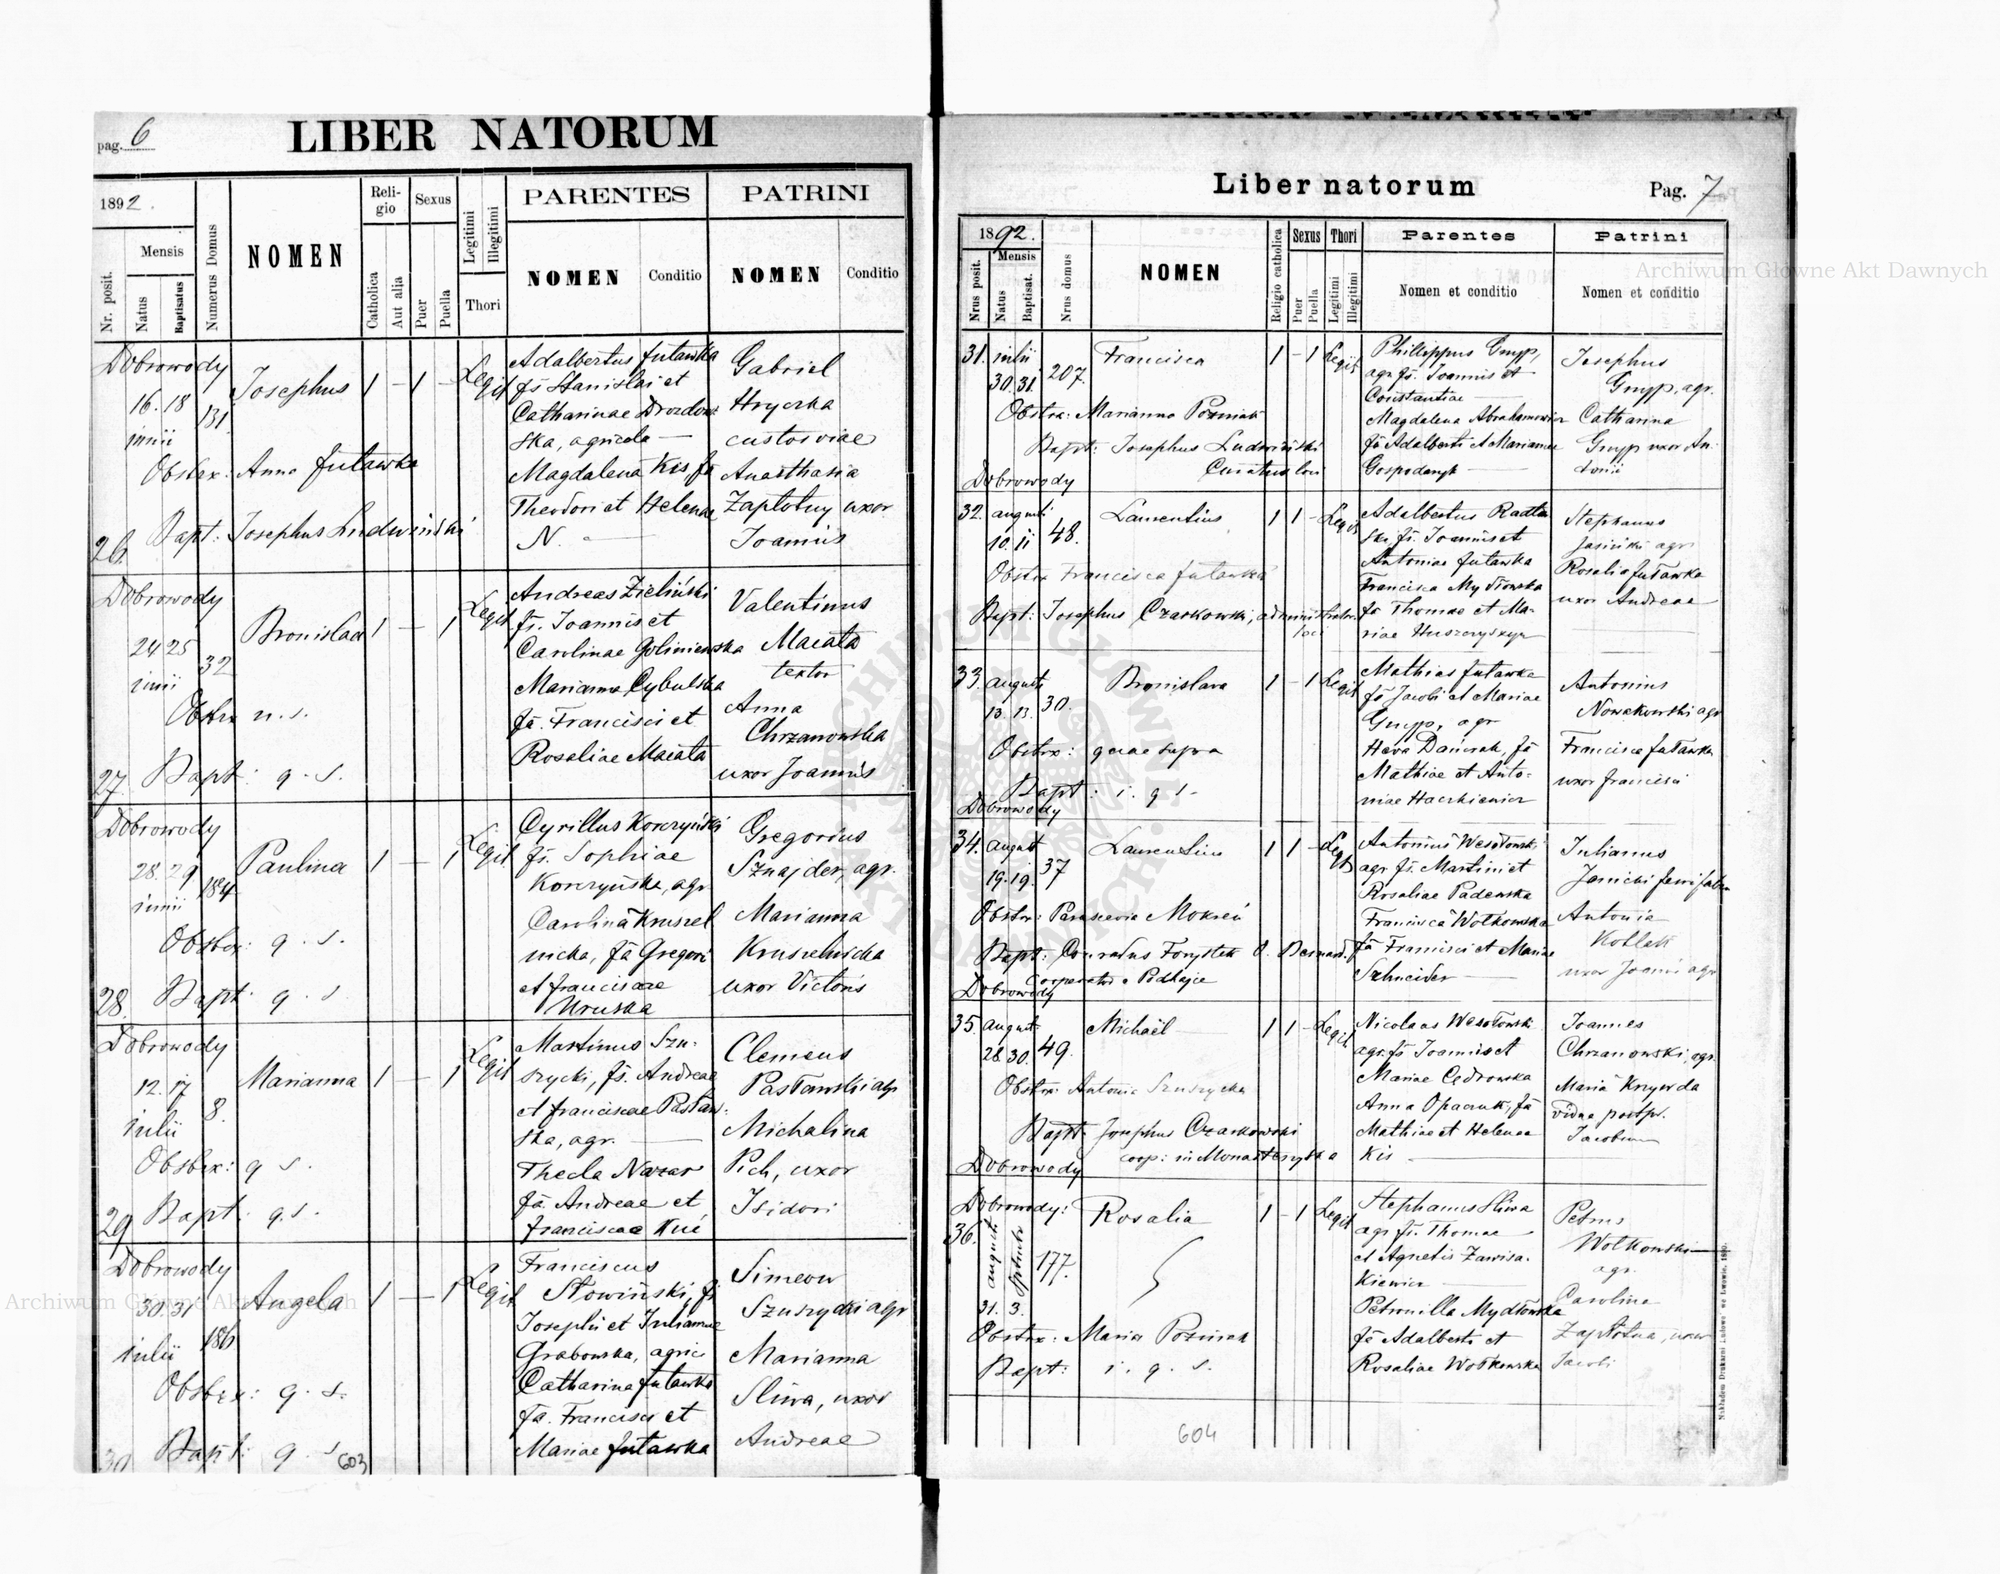 pag. 6
LIBER NATORUM
1892.
Nr. posit.
Mensis
Natus
Baptisatus
Numerus Domus
NOMEN
Reli-
gio
Catholica
Aut alia
Sexus
Puer
Puella
Legitimi
Illegitimi
Thori
PARENTES
NOMEN
Conditio
PATRINI
NOMEN
Conditio
Dobrowody
16. 18
junii
131.
Josephus
1 – 1 –
Legit
Obstex: Anna Jutawka
Bapt: Josephus Ludwiński
26.
Adalbertus Jutawka
fs Stanislai et
Catharinae Drozdow
ska, agricola —
Magdalena Kis, fa
Theodori et Helenae
N. —
Gabriel
Hryczka
custos viae
Anasthasia
Zapłotny uxor
Joannis
Dobrowody
24 25
junii
32
Bronislaa
1 – 1
Legit
Obstx u. s.
27. Bapt: q. s.
Andreas Zieliński
fs. Joannis et
Carolinae Goliniewska
Marianna Cybulska
fa. Francisci et
Rosaliae Maciata
Valentinus
Maciata
textor
Anna
Chrzanowska
uxor Joannis
Dobrowody
28. 29
junii
184
Paulina
1 – 1
Legit
Obstex: q. s.
28. Bapt: q. s
Cyrillus Korczyński
fs. Sophiae
Korczyńska, agr
Carolina Kruszel
nicka, fa Gregori
et Franciscae
Hruska
Gregorius
Sznajder, agr.
Marianna
Kruszelnicka
uxor Victoris
Dobrowody
12. 17
julii
8.
Marianna
1 – 1
Legit
Obstex: q s.
29 Bapt: q. s.
Martinus Szu-
szycki, fs. Andreae
et Franciscae Pasław-
ska, agr. —
Thecla Nazar
fa. Andreae et
Franciscae Kuć
Clemens
Pasławski agr
Michalina
Pich, uxor
Isidori
Dobrowody
30. 31
julii
186
Angela
1 – 1
Legit
Obstex: q. s.
30 Bapt: q. s
603
Franciscus
Słowiński, fs
Josephi et Julianae
Grabowska, agric
Catharina Jutawka
fa. Francisci et
Mariae Jutawka
Simeon
Szuszycki agr
Marianna
Sliwa, uxor
Andreae
Liber natorum
Pag. 7
1892.
Nrus posit.
Mensis
Natus
Baptisat.
Nrus domus
NOMEN
Religio catholica
Sexus
Puer
Puella
Thori
Legitimi
Illegitimi
Parentes
Nomen et conditio
Patrini
Nomen et conditio
31. julii
30. 31. 207.
Francisca
1 – 1 Legit
Obstx: Marianna Poźniak
Bapt: Josephus Ludwiński
Curatus loci
Philippus Gmyp,
agr. fs. Joannis et
Constantiae —
Magdalena Abrahamowicz
fa Adalberti et Mariannae
Gospodaryk —
Josephus
Gmyp, agr.
Catharina
Gmyp uxor An-
tonii
Dobrowody
32. augusti
10. 11 48.
Laurentius
1 1 – Legit
Obstx Francisca Jutawka
Bapt: Josephus Czaskowski, administrator
loci
Adalbertus Radto
ski fs. Joannis et
Antoniae Jutawka
Francisca Mydłowska
fa Thomae et Ma-
riae Huszczyszyn
Stephanus
Jasiński agr
Rosalia Jutawka
uxor Andreae
33. augusti
13. 13. 30.
Bronislava
1 – 1 Legit
Obstx: quae supra
Bapt: i. q. s.
Mathias Jutawka
fs Jacobi et Mariae
Gmyp, agr
Heva Dańczak, fa
Mathiae et Anto-
niae Haczkiewicz
Antonius
Nowakowski agr
Francisca Jutawka
uxor Francisci
Dobrowody
34. august
19. 19. 37
Laurentius
1 1 – Legit
Obstx: Parascevia Mokreń
Bapt: Conradus Forystek O. Bernard.
Cooperator e Podhajce
Antonius Wesołowski
agr. fs. Martini et
Rosaliae Padewska
Francisca Wołkowska
fa Francisci et Mariae
Schneider —
Julianus
Janicki
Antonia
Kotlak
uxor Joanis agr
Dobrowody
35. august
28. 30. 49.
Michaël
1 1 – Legit
Obstx: Antonia Szuszycka
Bapt: Josephus Czaskowski
coop: in Monasterzyska
Nicolaus Wesołowski
agr. fs Joannis et
Mariae Cędrowska
Anna Opaczuk, fa
Mathiae et Helenae
Kis —
Joannes
Chrzanowski, agr.
Maria Krzywda
vidua postp.
Jacobum
Dobrowody
Dobrowody:
36. augusti septmbr
31. 3. 177.
Rosalia
1 – 1 Legit
Obstx: Maria Poźniak
Bapt: i. q. s.
Stephanus Sliwa
agr fs. Thomae
et Agnetis Zawisa-
kiewicz —
Petronilla Mydłowska
fa Adalberti et
Rosaliae Wołkowska
Petrus
Wołkowski
agr.
Carolina
Zapłotna, uxor
Jacobi
604
Nakładem Drukarni Ludowej we Lwowie. 1892.
Archiwum Główne Akt Dawnych
Archiwum Główne Akt Dawnych
ARCHIWUM GŁÓWNE AKT DAWNYCH